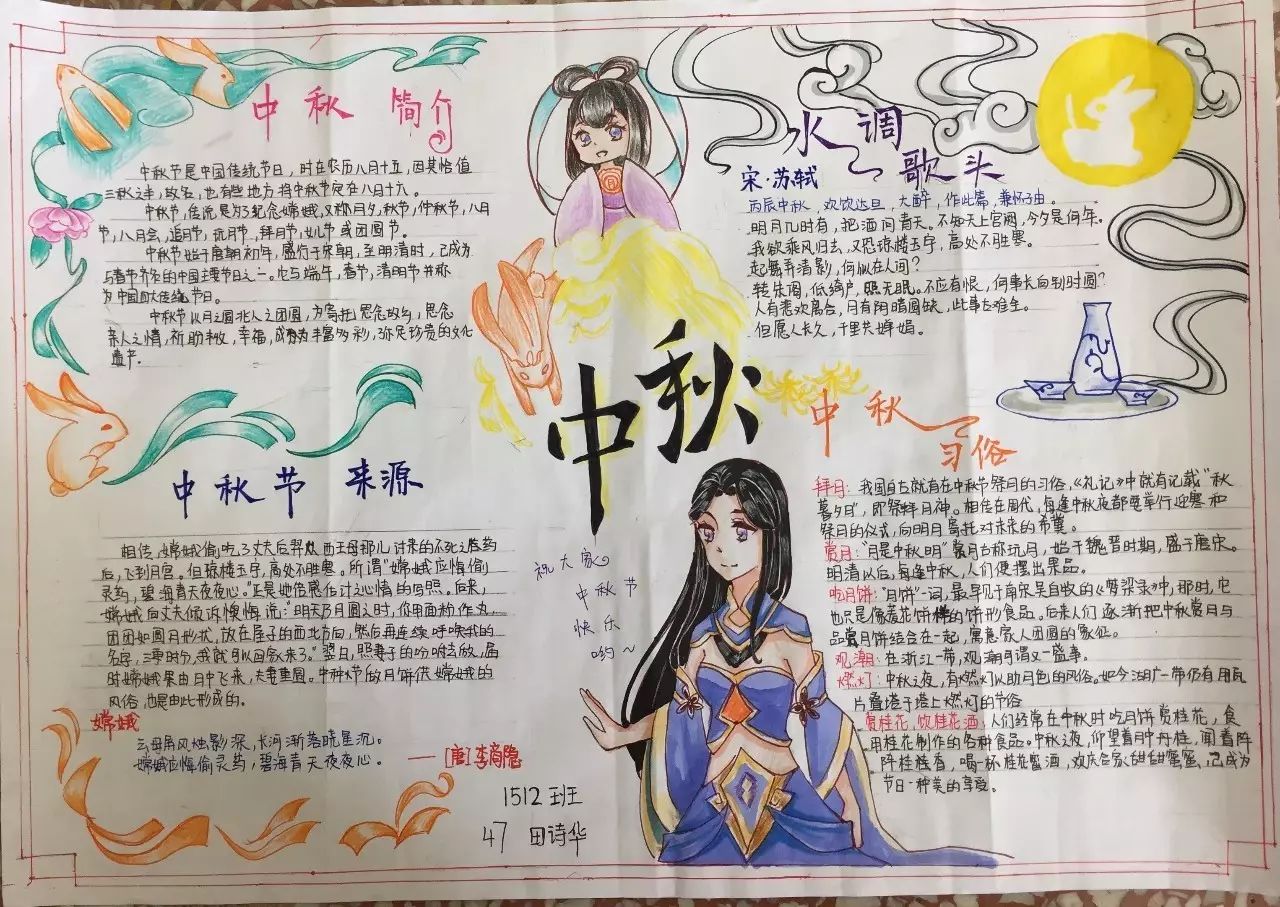 中秋 简介
中秋节是中国传统节日，时在农历八月十五，因其恰值
三秋之半，故名，也有些地方将中秋节定在八月十六。
中秋节，传说是为了纪念嫦娥，又称月夕，秋节，仲秋节，八月
节，八月会，追月节，玩月节，拜月节，女儿节或团圆节。
中秋节始于唐朝初年，盛行于宋朝，至明清时，已成为
与春节齐名的中国主要节日之一。它与端午，春节，清明节并称
为中国四大传统节日。
中秋节以月之圆兆人之团圆，为寄托思念故乡，思念
亲人之情，祈盼丰收，幸福，成为丰富多彩，弥足珍贵的文化
遗产。
中秋节 来源
相传，嫦娥偷吃了丈夫后羿从西王母那儿讨来的不死之药
后，飞到月宫。但琼楼玉宇，高处不胜寒。所谓“嫦娥应悔偷
灵药，碧海青天夜夜心。”正是她倍感
心情的写照。后来，
嫦娥向丈夫倾诉懊悔说：“明天乃月圆之时，你用面粉作丸，
团团如圆月形状，放在屋子的西北方向，然后再连续呼唤我的
名字，三更时分，我就可以回家来了。”翌日，照妻子的吩咐去做，届
时嫦娥果由月中飞来，夫妻重圆。中秋节做月饼供嫦娥的
风俗，也是由此形成的。
嫦娥
云母屏风烛影深，长河渐落晓星沉。
嫦娥应悔偷灵药，碧海青天夜夜心。
——[唐]李商隐
中秋
祝大家
中秋节
快乐
哟~
1512班
47 田诗华
水调
歌头
宋·苏轼
丙辰中秋，欢饮达旦，大醉，作此篇，兼怀子由。
明月几时有，把酒问青天。不知天上宫阙，今夕是何年。
我欲乘风归去，又恐琼楼玉宇，高处不胜寒。
起舞弄清影，何似在人间？
转朱阁，低绮户，照无眠。不应有恨，何事长向别时圆？
人有悲欢离合，月有阴晴圆缺，此事古难全。
但愿人长久，千里共婵娟。
中秋
习俗
拜月：我国自古就有在中秋节祭月的习俗，《礼记》中就有记载“秋
暮夕月”，即祭拜月神。相传在周代，每逢中秋夜都要举行迎寒和
祭月的仪式，向明月寄托对未来的希冀。
赏月：“月是中秋明”赏月古称玩月，始于魏晋时期，盛于唐宋。
明清以后，每逢中秋，人们便摆出果品。
吃月饼：“月饼”一词，最早见于南宋吴自牧的《梦梁录》中，那时，它
也只是像菱花饼样的饼形食品。后来人们逐渐把中秋赏月与
品尝月饼结合在一起，寓意家人团圆的象征。
观潮：在浙江一带，观潮可谓又一盛事。
燃灯：中秋之夜，有燃灯以助月色的风俗。如今湖广一带仍有用瓦
片叠塔于塔上燃灯的节俗
赏桂花，饮桂花酒：人们经常在中秋时吃月饼赏桂花，食
用桂花制作的各种食品。中秋之夜，仰望着月中丹桂，闻着阵
阵桂香，喝一杯桂花蜜酒，欢庆合家甜甜蜜蜜，已成为
节日一种美的享受。